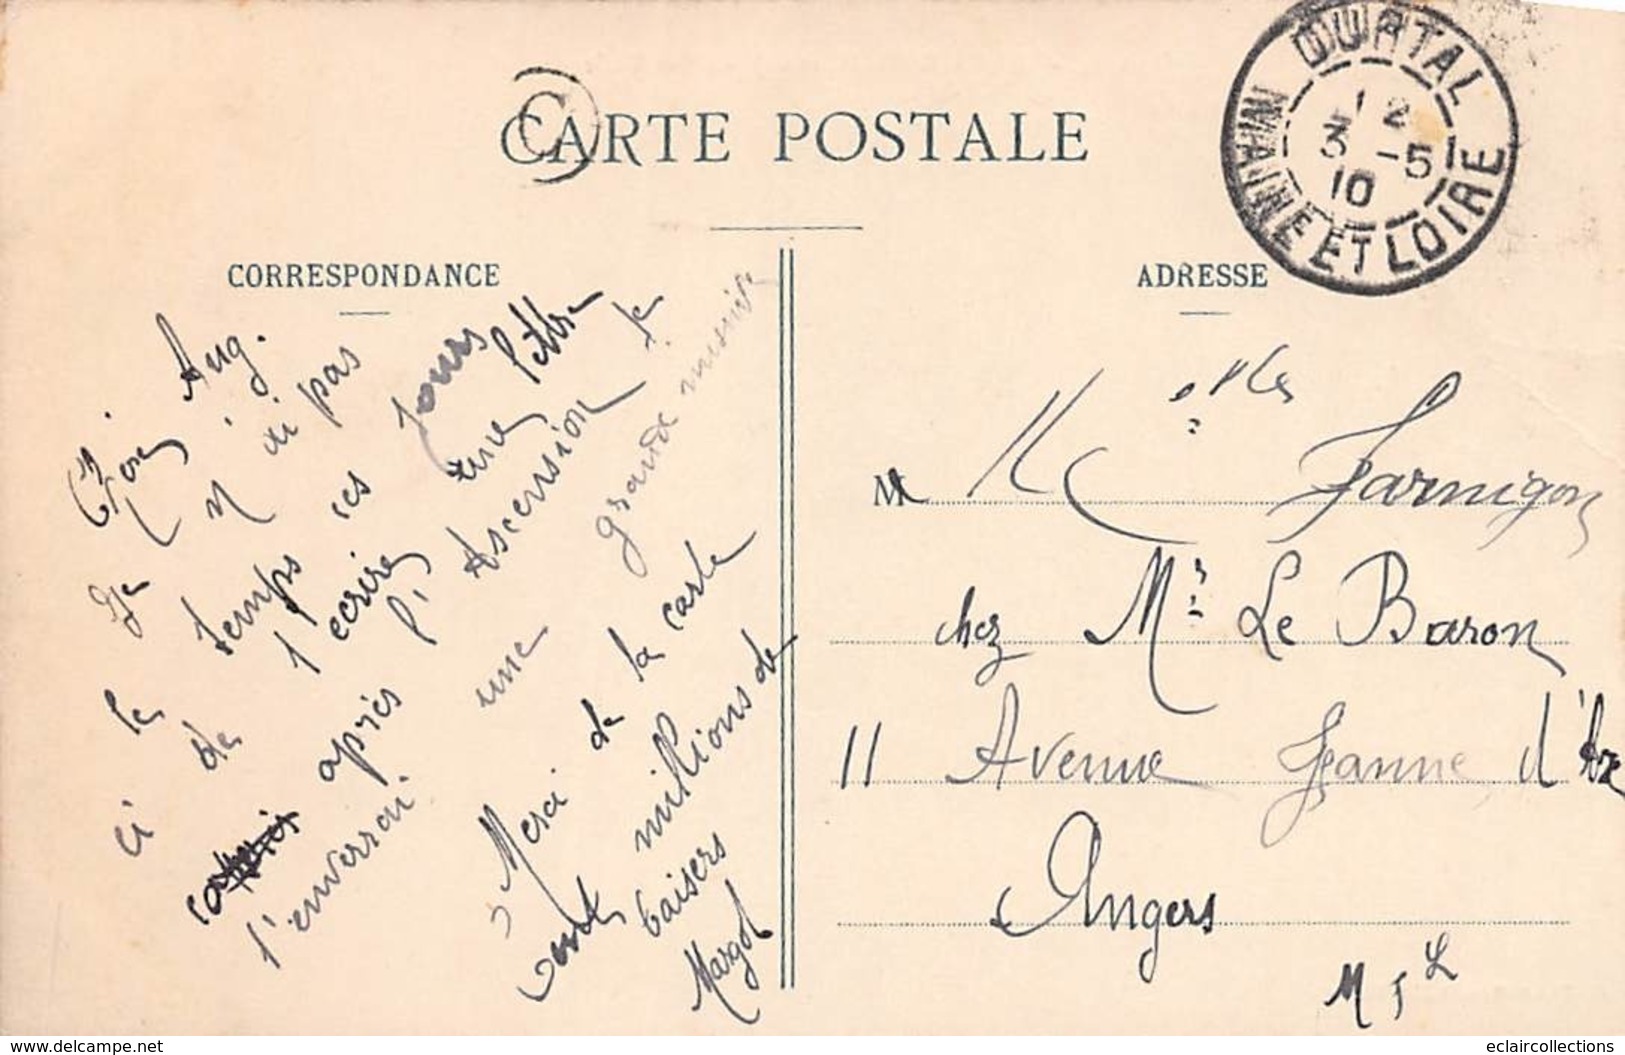 CARTE POSTALE
CORRESPONDANCE
ADRESSE
DURTAL
12
3 -5
10
MAINE ET LOIRE
Aug.
Je n'ai pas
le temps ces jours
ci de t'ecrire une lettre
après l'Ascension je
t'enverrai une grande missive
Merci de la carte
millions de
baisers
Margot
M elle Farnigon
chez Mr Le Baron
11 Avenue Jeanne d'Arc
Angers
M & L
delcampe.net
eclaircollections